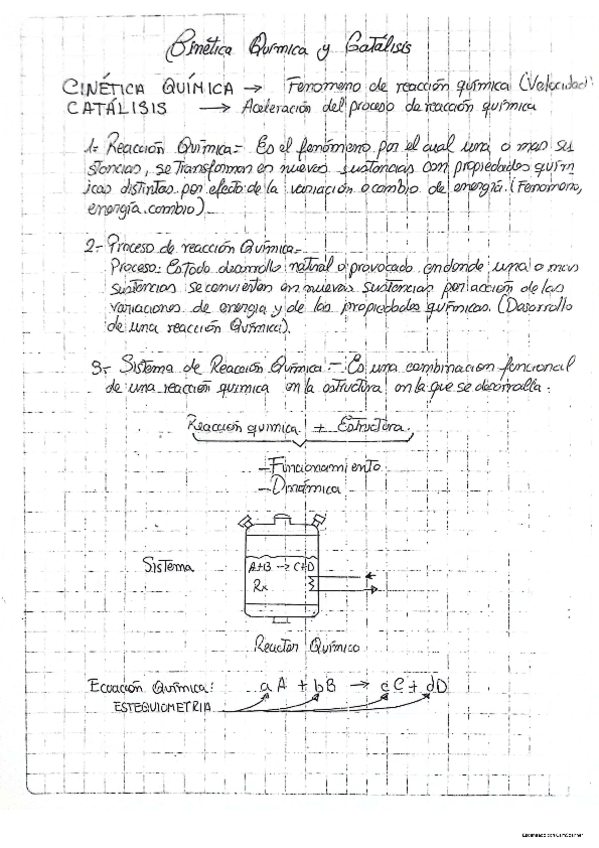 Cinética Química y Catálisis
CINÉTICA QUÍMICA → Fenomeno de reacción química (Velocidad)
CATÁLISIS → Aceleración del proceso de reacción química
1- Reacción Química.- Es el fenómeno por el cual una o mas su
stancias, se transforman en nuevas sustancias con propiedades quím
icas distintas por efecto de la variación o cambio de energía. (Fenomeno,
energía.cambio)
2- Proceso de reacción Química.-
Proceso: Es todo desarrollo natural o provocado en donde una o mas
sustancias se convierten en nuevas sustancias por acción de las
variaciones de energia y de las propiedades químicas. (Desarrollo
de una reacción Química).
3- Sistema de Reacción Química.- Es una combinacion funcional
de una reacción quimica en la estructura en la que se desarrolla.
Reacción quimica + Estructura.
- Funcionamiento
- Dinámica
Sistema
A+B → C+D
Rx
Reactor Químico
Ecuación Química: aA + bB → cC + dD
ESTEQUIOMETRIA